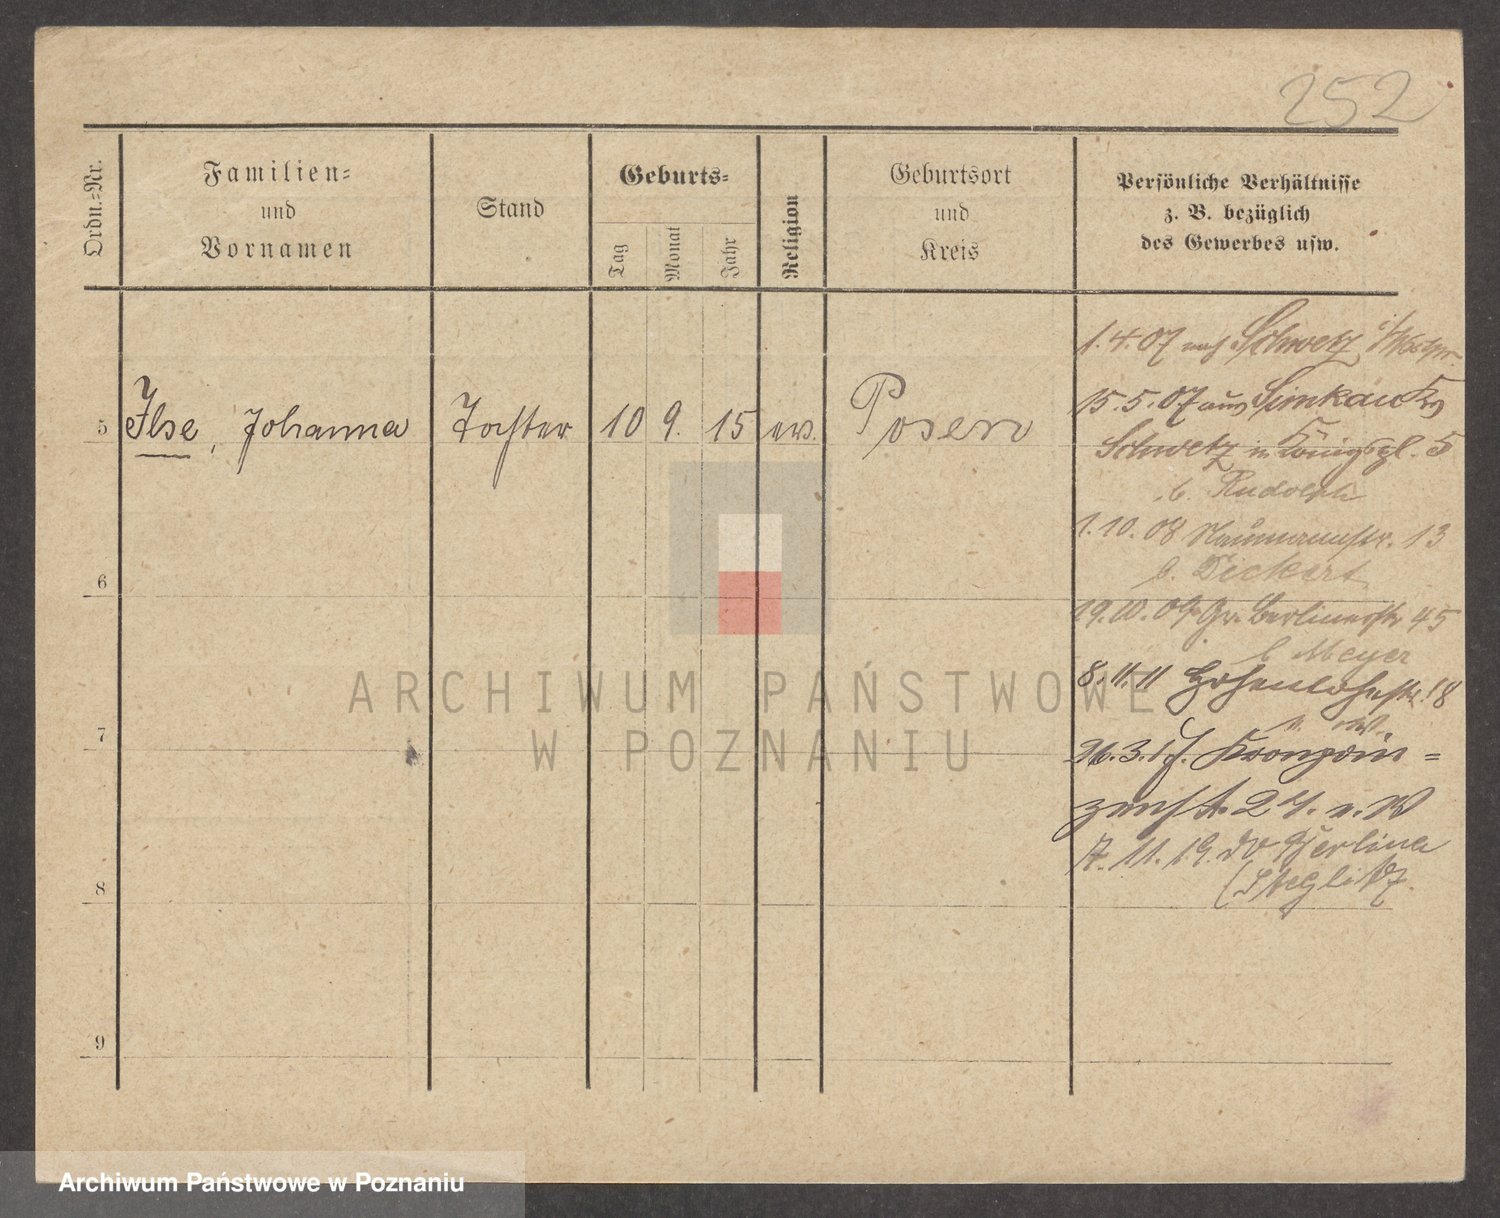 252
Ordn.-Nr.
Familien-
und
Vornamen
Stand
Geburts-
Tag
Monat
Jahr
Religion
Geburtsort
und
Kreis
Persönliche Verhältnisse
z. B. bezüglich
des Gewerbes usw.
5 Ilse, Johanna Tochter 10 9. 15 ev. Posen
6
7
8
9
1.4.07 nach Schwetz
15.5.07 aus Simkau Krs
Schwetz in Königspl. 5
b. Rudolph
1.10.08 Naumannstr. 13
b. Dickert
19.10.09 Gr. Berlinerstr 45
b Meyer
8.11.11 Hohenlohestr. 18
26.3.17. Kronprin=
zenstr. 27. a. W
7.11.19. Berlin
(Steglitz.
ARCHIWUM PAŃSTWOWE
W POZNANIU
Archiwum Państwowe w Poznaniu